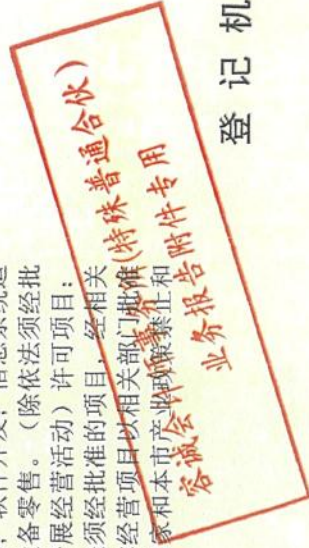 软件开发；信息系统运
备零售。（除依法须经批
展经营活动）许可项目：
须经批准的项目，经相关
经营项目以相关部门批准
家和本市产业政策禁止和
容诚会计师事务所(特殊普通合伙)
业务报告附件专用
登记机